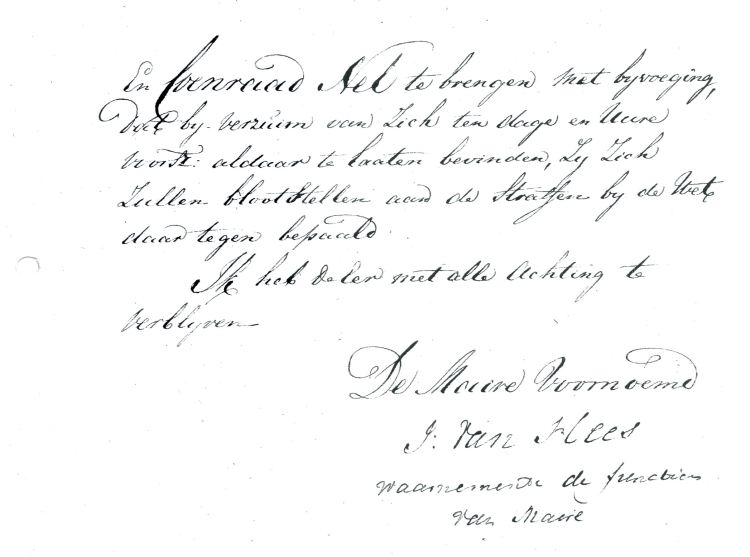 En Coenraad Nel te brengen met byvoeging,
dat by verzuim van Zich ten dage en Uure
voorsz: aldaar te laaten bevinden, Zy Zich
Zullen blootstellen aan de Straffen by de Wet
daar tegen bepaald.
Ik heb de Eer met alle Achting te
verblyven
De Maire Voornoemd
J: van Hees
waarnemende de functien
van Maire